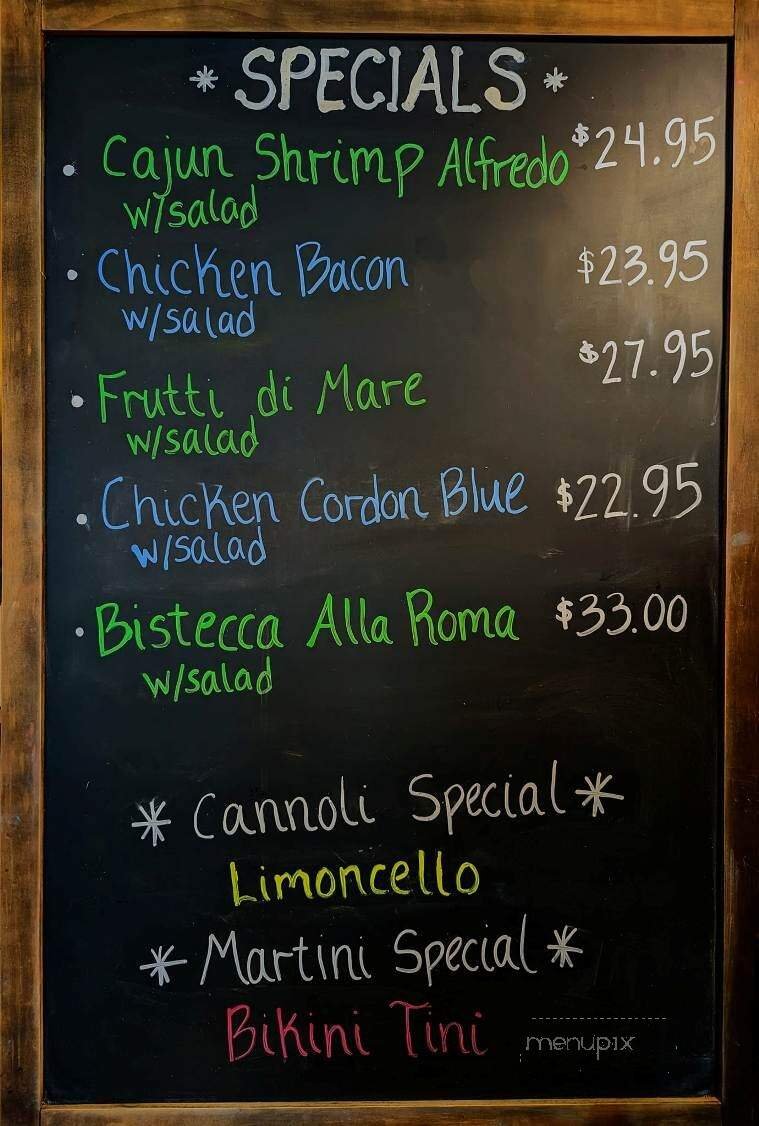 * SPECIALS *
• Cajun Shrimp Alfredo $24.95
w/salad
• Chicken Bacon $23.95
w/salad
• Frutti di Mare $27.95
w/salad
• Chicken Cordon Blue $22.95
w/salad
• Bistecca Alla Roma $33.00
w/salad
* Cannoli Special *
Limoncello
* Martini Special *
Bikini Tini
menupix